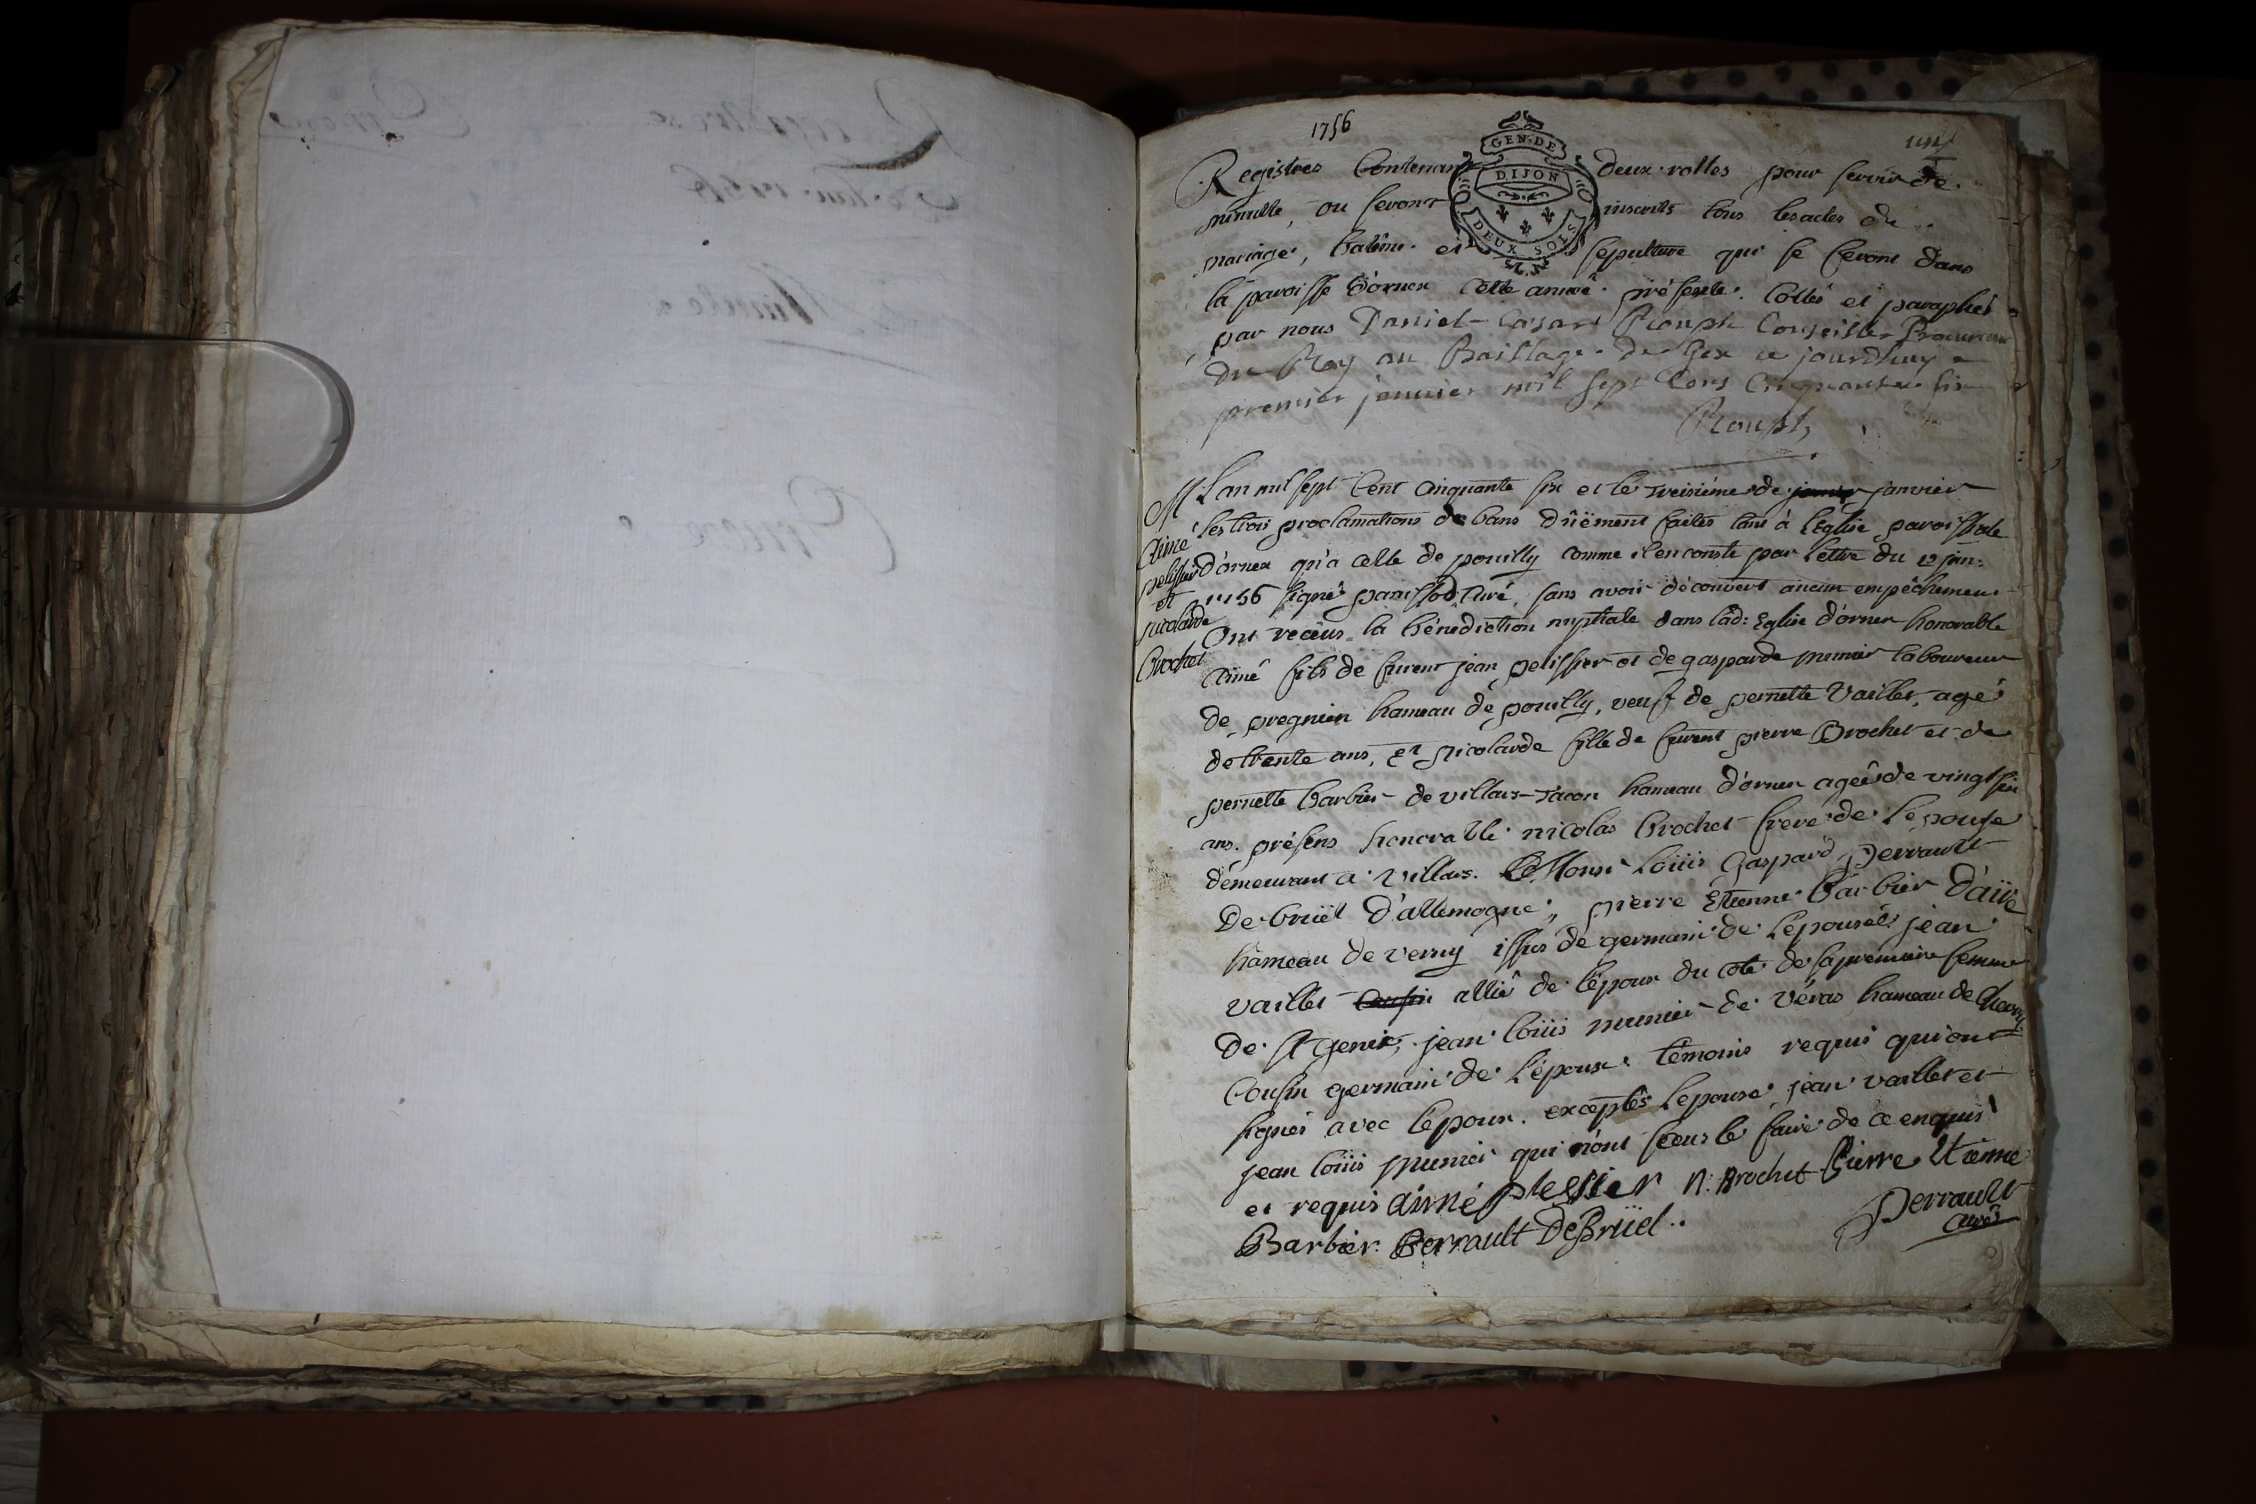 1756
GEN·DE
DIJON
DEUX SOLS
Registres Contenant deux rolles pour servir de
minutte, ou seront inscrits tous les actes de
mariage, batême et sepulture qui se feront dans
la paroisse d'ornex cette année présente. Cottés et paraphés
par nous Daniel Cesar Rouph Conseiller Procureur
du Roy au Bailliage de Gex ce jourdhuy
premier janvier mil sept Cens Cinquante six
Rouph
M
Aimé
pelissier
et
nicolarde
Brochet
L'an mil sept Cent Cinquante six et le treisiéme de janvier
les trois proclamations de bans dûëment faites tant à l'Eglise paroissiale
d'ornex qu'a celle de pouilly comme il en conste par lettre du 12 jan:
1756 signé panissod Curé, sans avoir découvert aucun empêchement
Ont receus la bénediction nuptiale dans lad: Eglise d'ornex honorable
Aimé fils de furent jean pelissier et de gasparde munier laboureur
de pregnien hameau de pouilly, veuf de pernette Vaillet, agé
de trente ans, Et nicolarde fille de furent pierre Brochet et de
pernette barbier de villars-Tacon hameau d'ornex agée de vingt six
ans. présens honorable nicolas brochet frere de l'epouse
démeurant a villars. Monsr Loüis Gaspard Perrault
De brüel d'allemogne, pierre Etienne barbier d'aïre
hameau de verny issus de germain de l'epouseé jean
vaillet cousin allié de l'epoux du coté de sa premiere femme
de St Genix, jean loüis munier de véras hameau de Chevry
Cousin germain de l'époux témoins requis qui ont
signés avec l'époux. exceptés l'epouse, jean vaillet et
jean loüis munier qui n'ont sceus le faire de ce enquis
et requis aimé plessier n: Brochet Pierre Etienne
Barbier. Perrault DeBrüel.
Perrault
curé